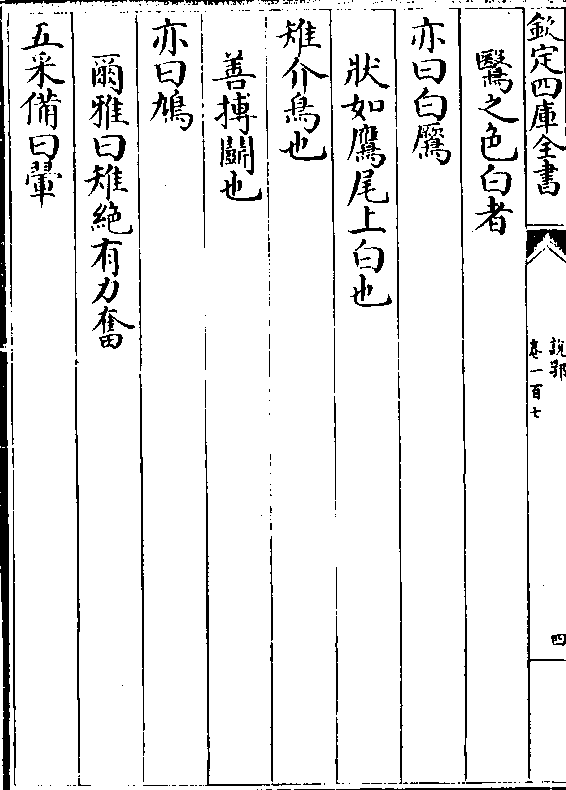 欽定四庫全書
說郛
卷一百七
四
鷖之色白者
亦曰白鷢
狀如鷹尾上白也
雉介鳥也
善搏鬭也
亦曰鳩
爾雅曰雉絶有力奮
五采備曰翬